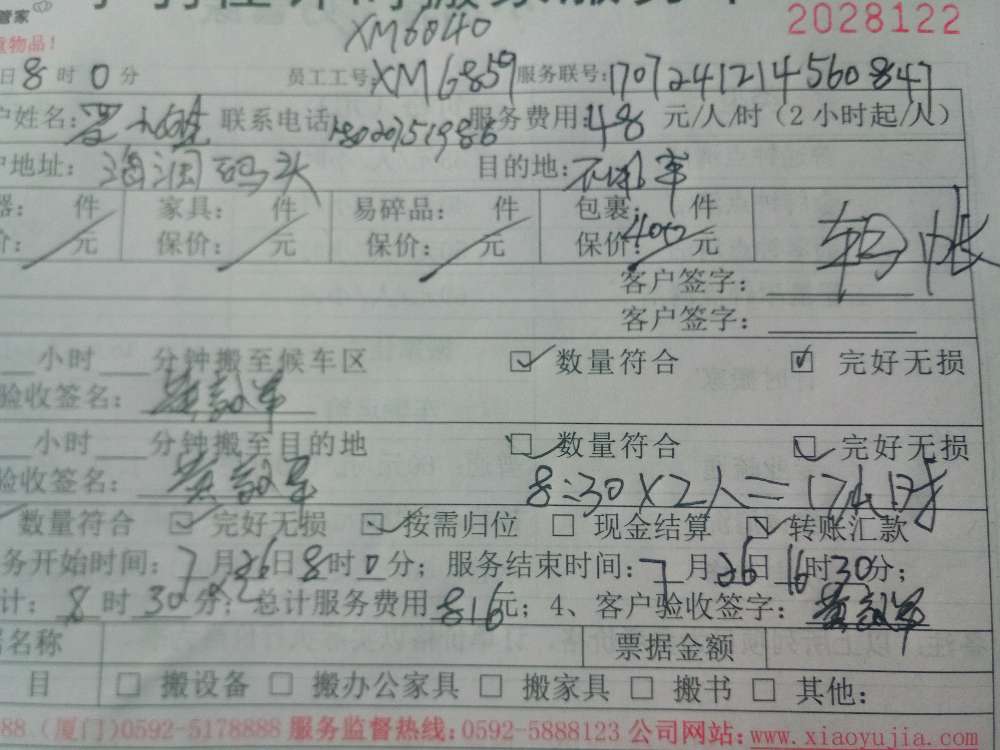 管家
2028122
XM6040
物品!
日8时0分 员工工号:XM6859 服务联号:1707241214560847
户姓名: 联系电话:18020751986 服务费用:48元/人/时(2小时起/人)
户地址:海润码头 目的地:
器: 件 家具: 件 易碎品: 件 包裹: 件
价: 元 保价: 元 保价: 元 保价:400元
客户签字:
客户签字:
小时 分钟搬至候车区 ☑数量符合 ☑完好无损
验收签名:
小时 分钟搬至目的地 ☑数量符合 ☑完好无损
验收签名: 8:30×2人=17小时
数量符合 ☑完好无损 ☑按需归位 □现金结算 ☑转账汇款
务开始时间:7月26日8时0分;服务结束时间:7月26日16时30分;
计:8时30分×2;总计服务费用816元;4、客户验收签字:
名称 票据金额
目 □搬设备 □搬办公家具 □搬家具 □搬书 □其他:
88.(厦门)0592-5178888 服务监督热线:0592-5888123 公司网站:www.xiaoyujia.com